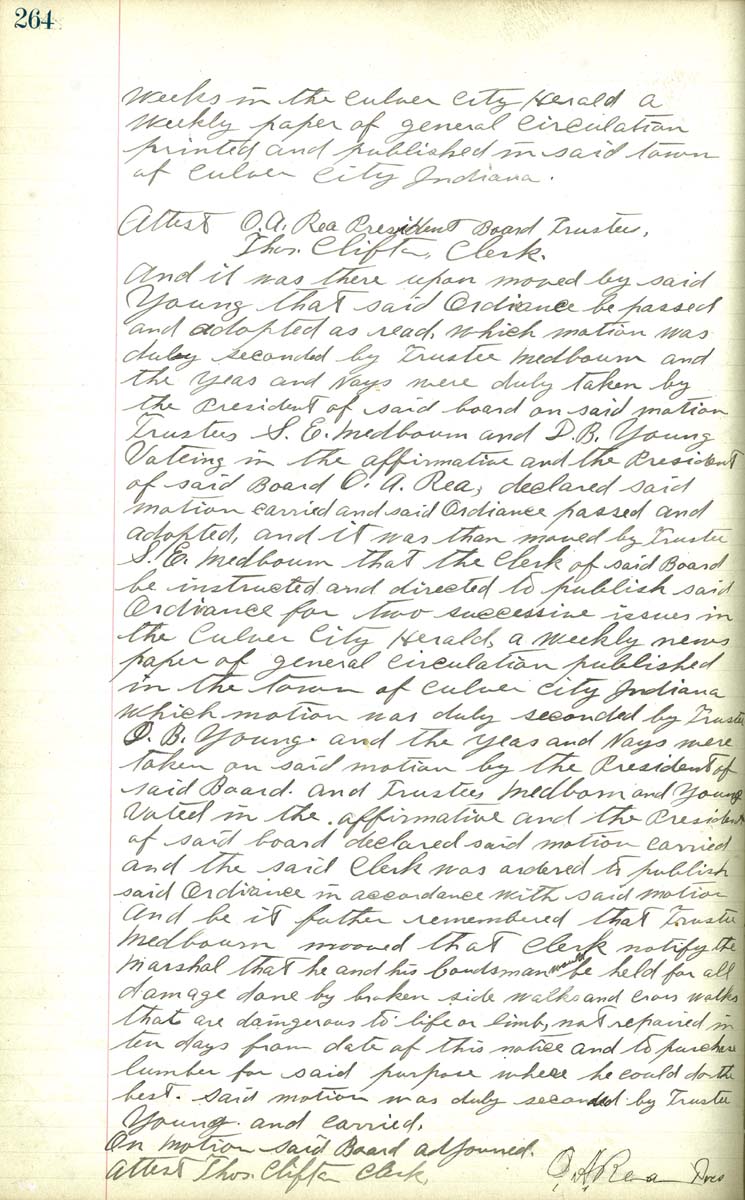 264
weeks in the Culver City Herald a
weekly paper of general circulation
printed and published in said town
of Culver City Indiana.
Attest O. A. Rea President Board Trustees,
Thos. Clifton, Clerk.
And it was there upon moved by said
Young that said Ordiance be passed
and adopted as read, which motion was
duly seconded by Trustee Medbourn and
the Yeas and Nays were duly taken by
the President of said board on said motion
Trustees S. E. Medbourn and D. B. Young
Voteing in the affirmative and the President
of said Board O. A. Rea, declared said
motion carried and said Ordiance passed and
adopted, and it was than moved by Trustee
S. E. Medbourn that the Clerk of said Board
be instructed and directed to publish said
Ordiance for two successive issues in
the Culver City Herald, a weekly news
paper of general circulation published
in the town of Culver City Indiana
which motion was duly seconded by Trustee
D. B. Young and the Yeas and Nays were
taken on said motion by the President of
said Board. and Trustees Medborn and Young
Voted in the affirmative and the President
of said board declared said motion carried
and the said Clerk was ordered to publish
said Ordiance in accordance with said motion
And be it futher remembered that Trustee
Medbourn mooved that Clerk notify the
Marshal that he and his bondsman would be held for all
damage done by broken side walks and cross walks
that are daingerous to life or limb, not repaired in
ten days from date of this notice and to purchase
lumber for said purpose where he could do the
best. Said motion was duly seconded by Trustee
Young and carried.
On motion said Board adjourned.
Attest Thos. Clifton Clerk. O. A. Rea Pres